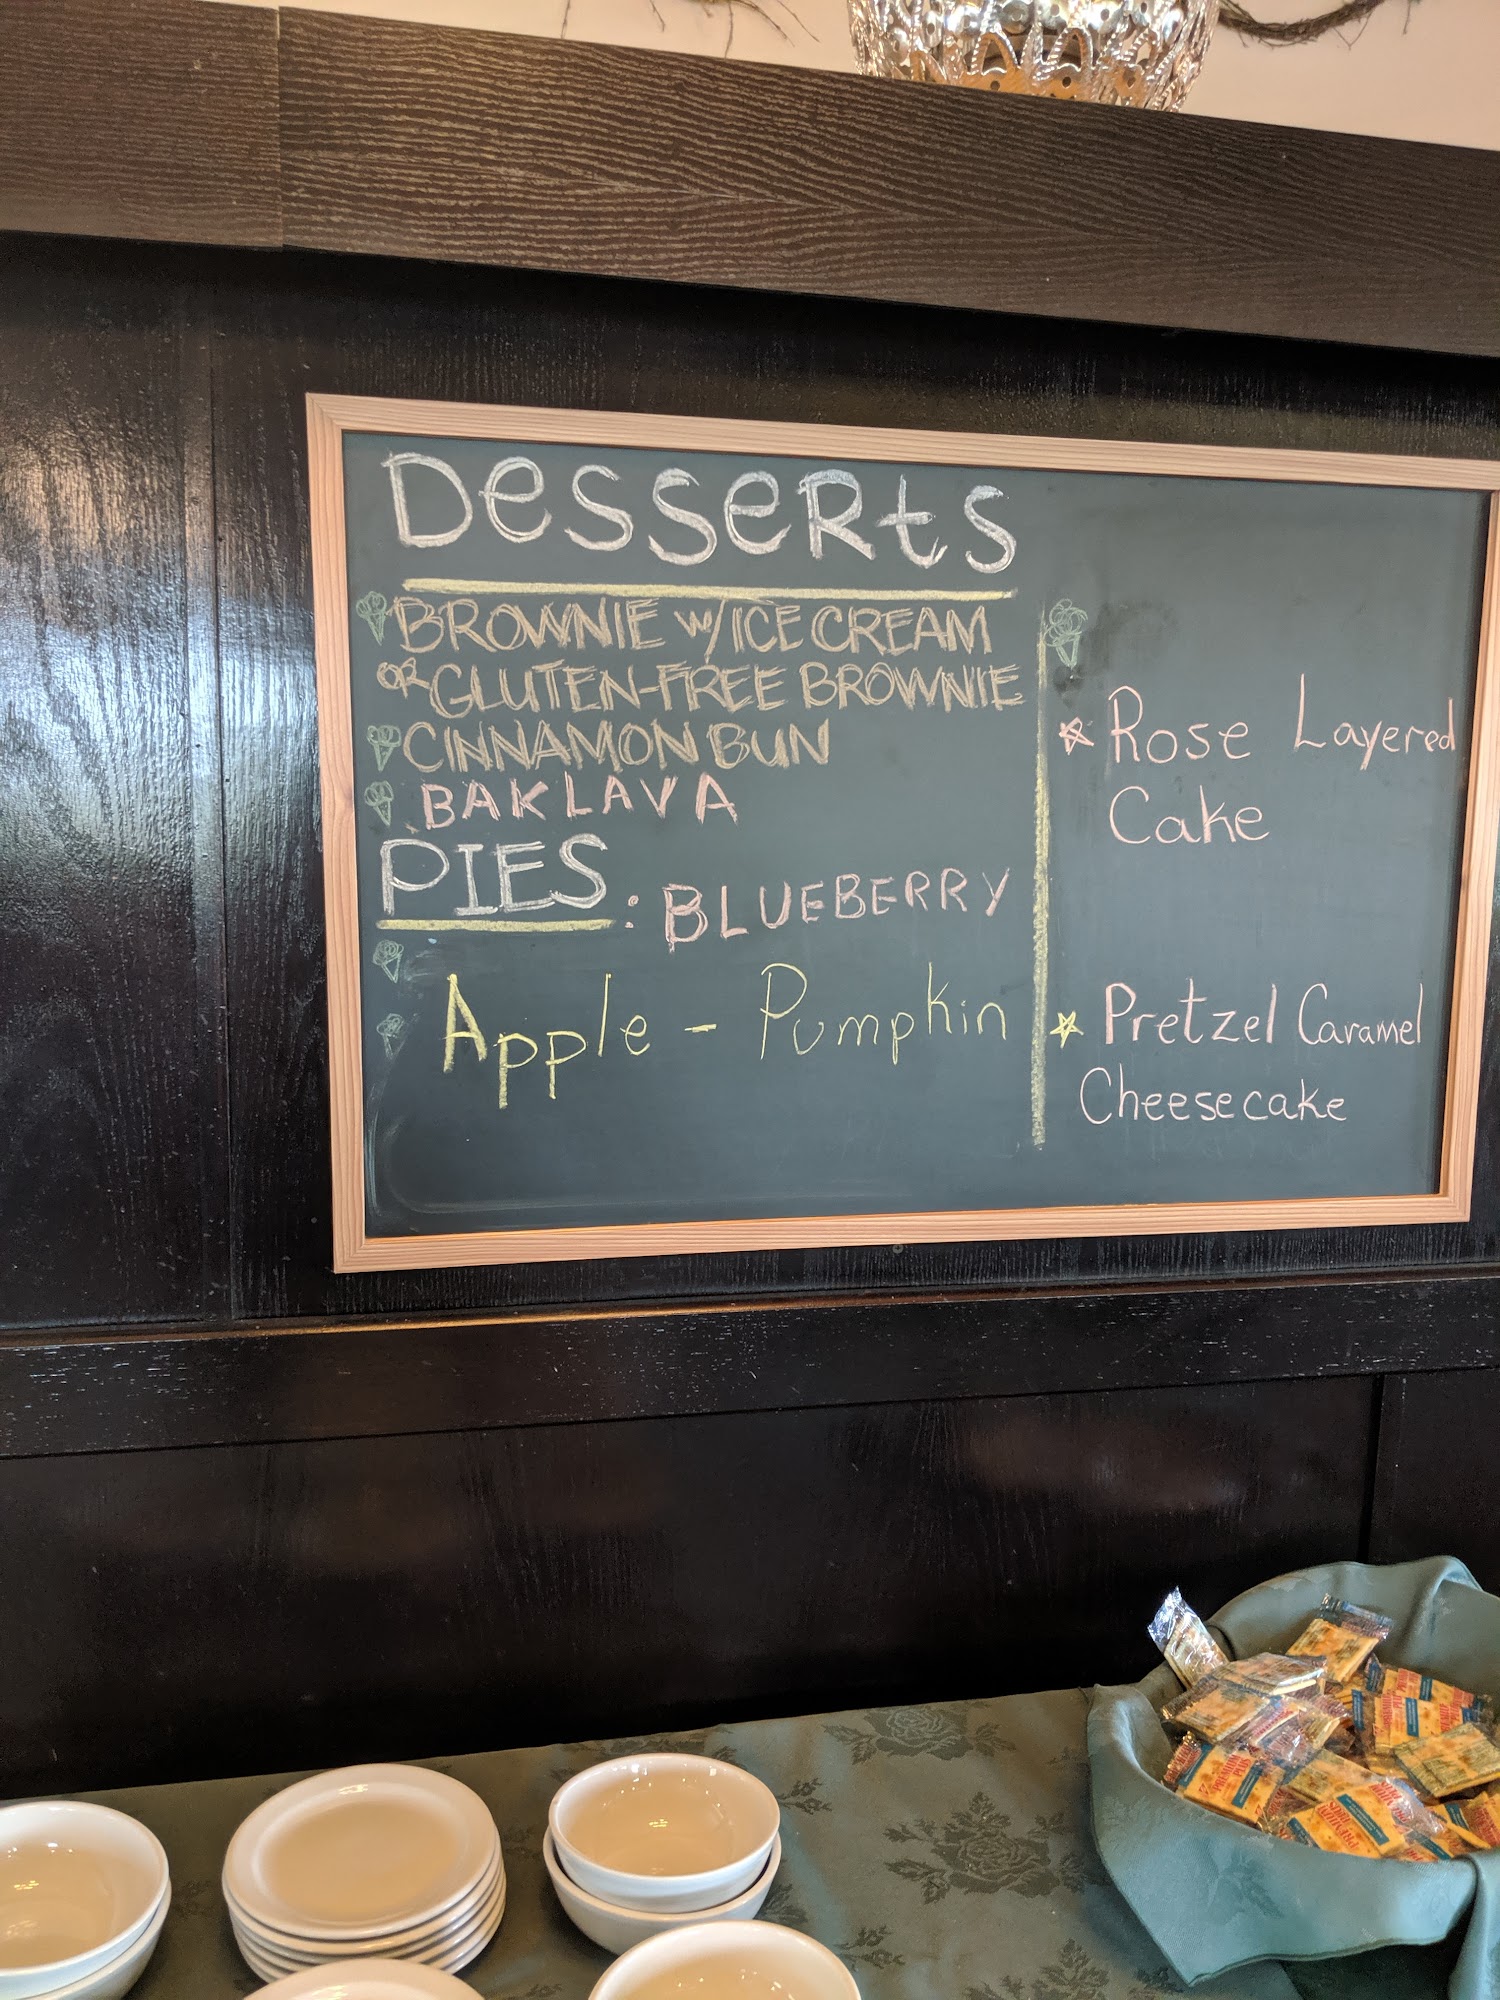 Desserts
BROWNIE w/ICE CREAM
OR GLUTEN-FREE BROWNIE
CINNAMON BUN
BAKLAVA
PIES: BLUEBERRY
Apple - Pumpkin
Rose Layered
Cake
Pretzel Caramel
Cheesecake
PREMIUM